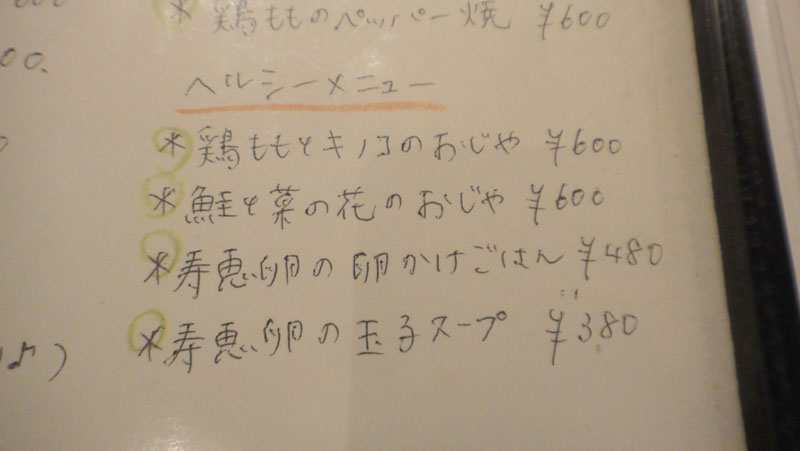 *鶏もものペッパー焼 ¥600
00.
ヘルシーメニュー
*鶏ももとキノコのおじや ¥600
*鮭と菜の花のおじや ¥600
*寿恵卵の卵かけごはん ¥480
*寿恵卵の玉子スープ ¥380
♪)